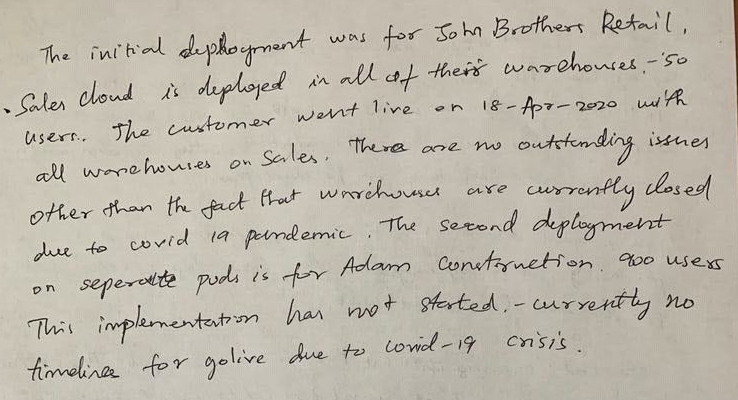 The initial deployment was for John Brothers Retail.
. Sales cloud is deployed in all of their warehouses. - 50
users. The customer went live on 18-Apr-2020 with
all warehouses on Sales. There are no outstanding issues
other than the fact that warehouses are currently closed
due to covid 19 pandemic. The second deployment
on seperate pods is for Adam Construction. 900 users
This implementation has not started. - currently no
timelines for golive due to covid-19 crisis.